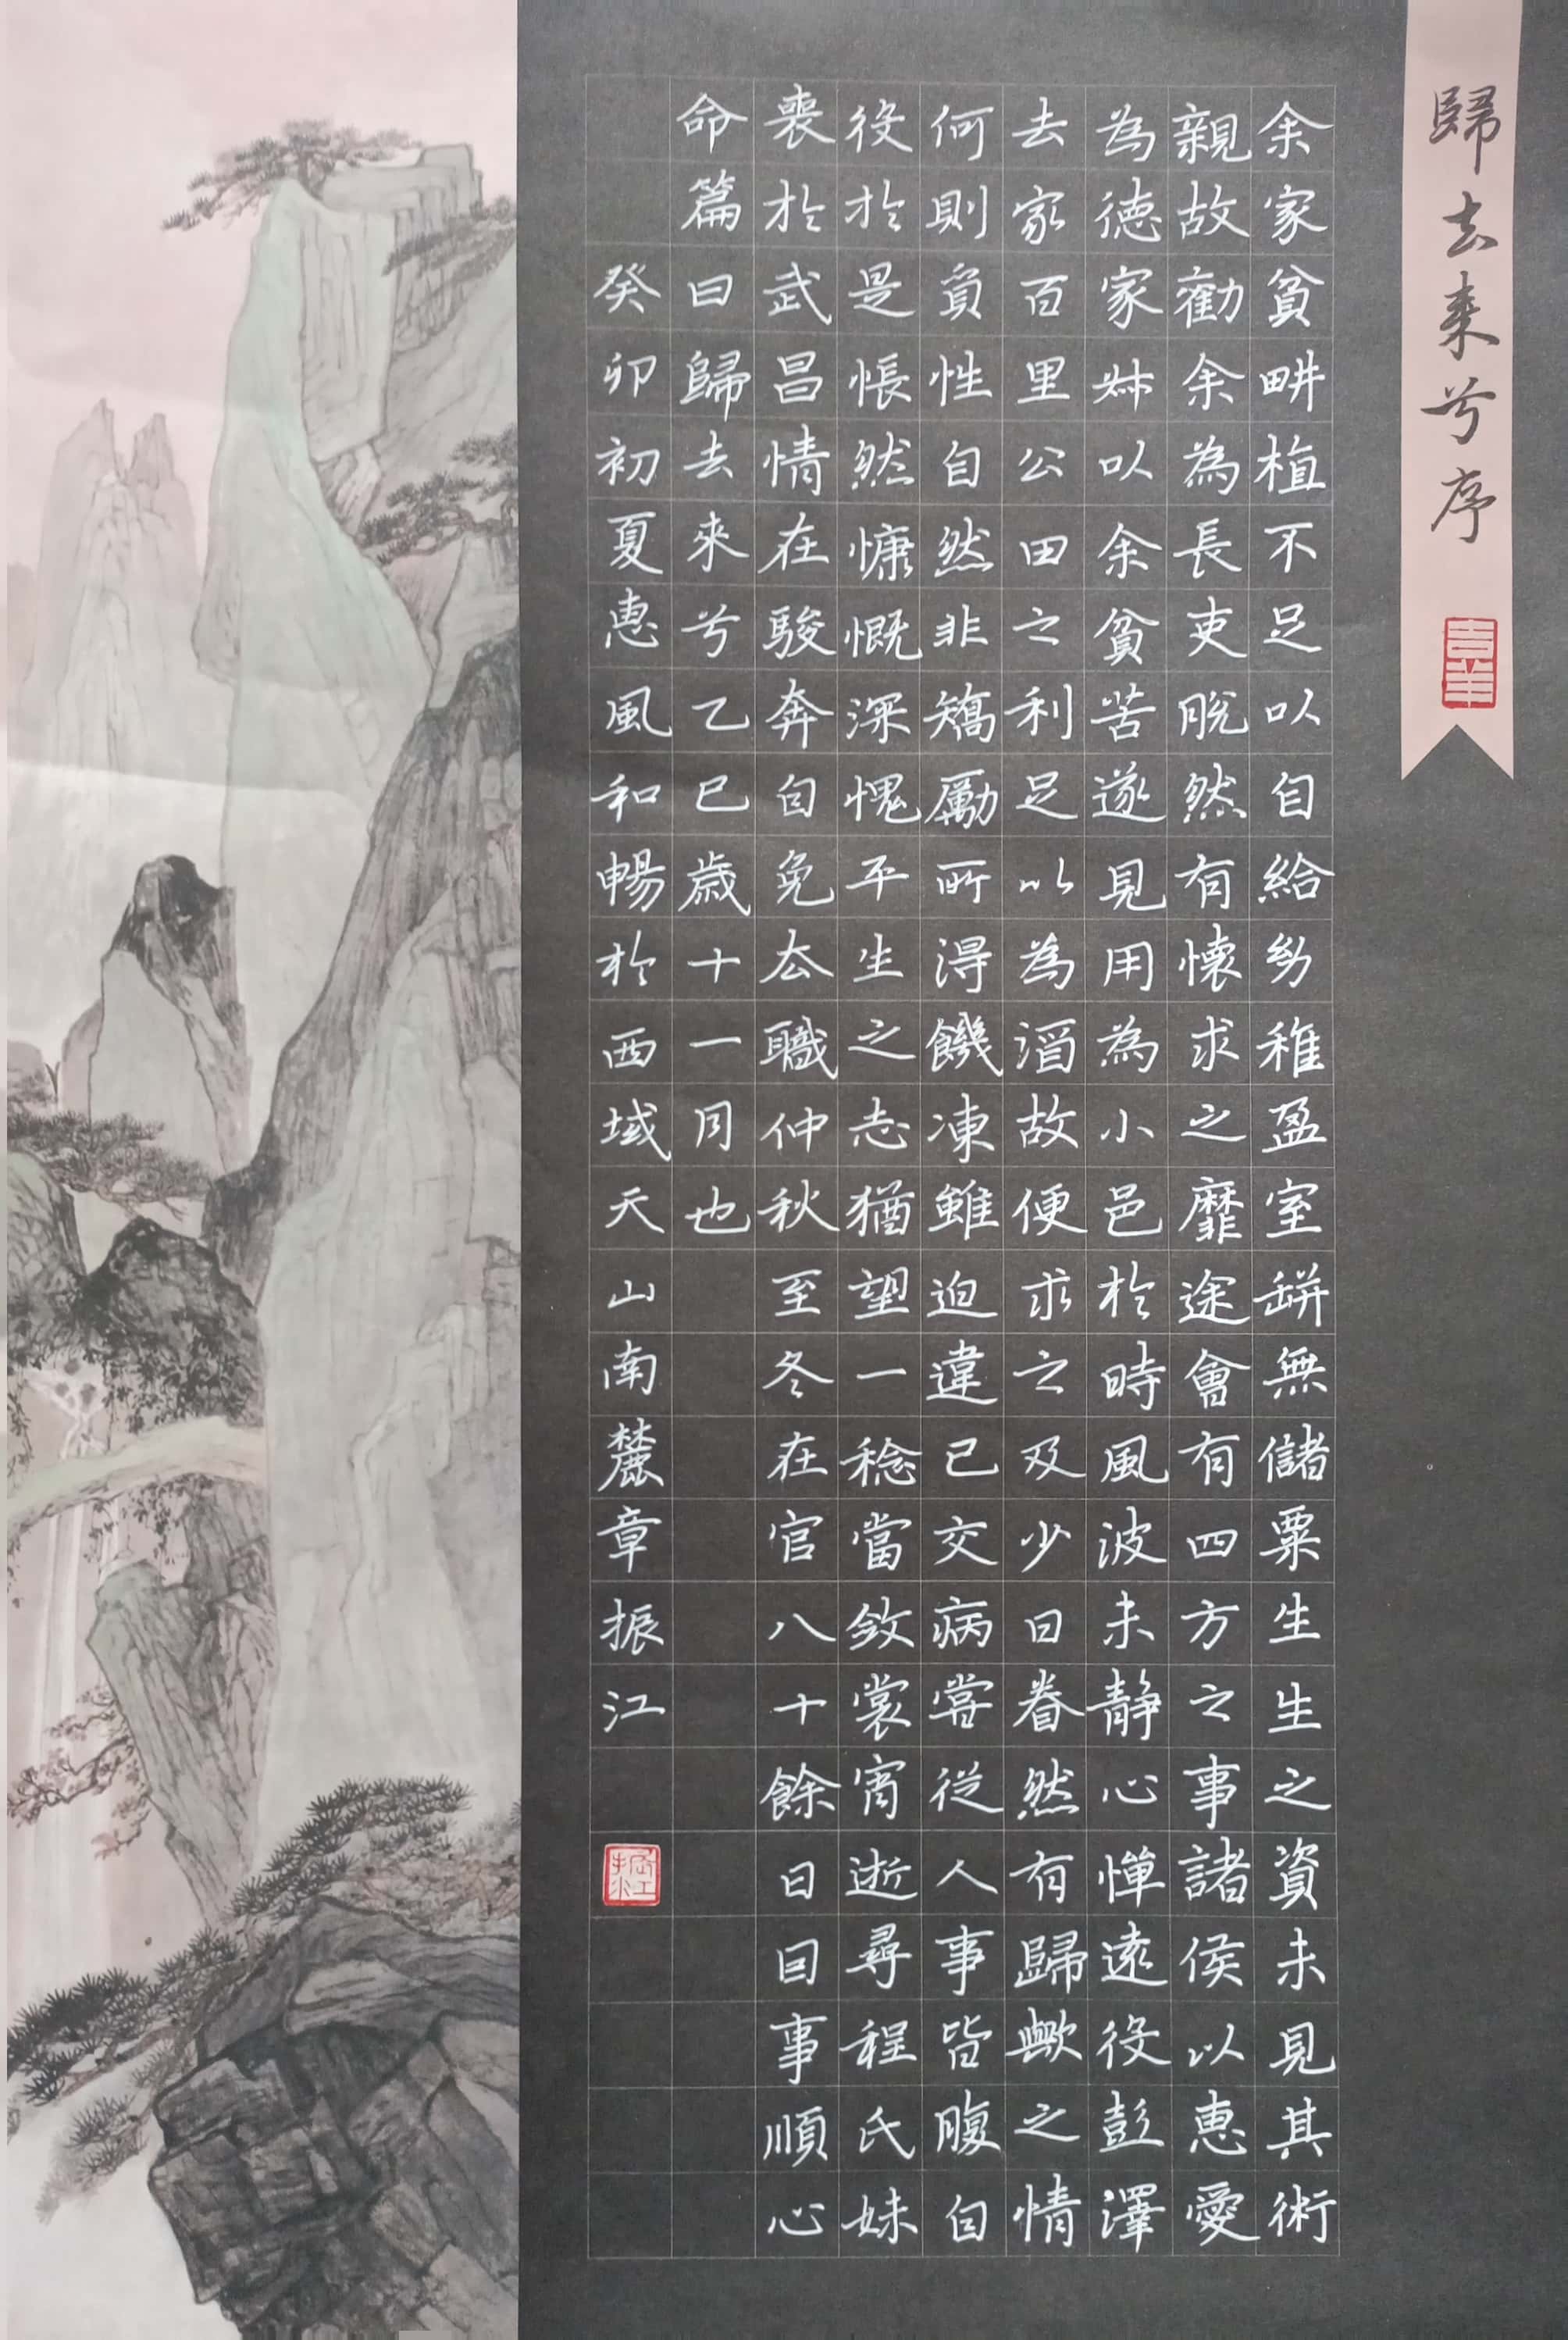 歸去来兮序
吉羊
余家貧畊植不足以自給幼稚盈室缾無儲粟生生之資未見其術
親故勸余為長吏脫然有懷求之靡途會有四方之事諸侯以惠愛
為德家叔以余貧苦遂見用為小邑於時風波未静心憚遠役彭澤
去家百里公田之利足以為酒故便求之及少日眷然有歸歟之情
何則負性自然非矯勵所得饑凍雖迫違已交病嘗從人事皆腹自
役於是悵然慷慨深愧平生之志猶望一稔當斂裳宵逝尋程氏妹
喪於武昌情在駿奔自免去職仲秋至冬在官八十餘日因事順心
命篇曰歸去來兮乙巳歲十一月也
癸卯初夏惠風和暢於西域天山南麓章振江
振江